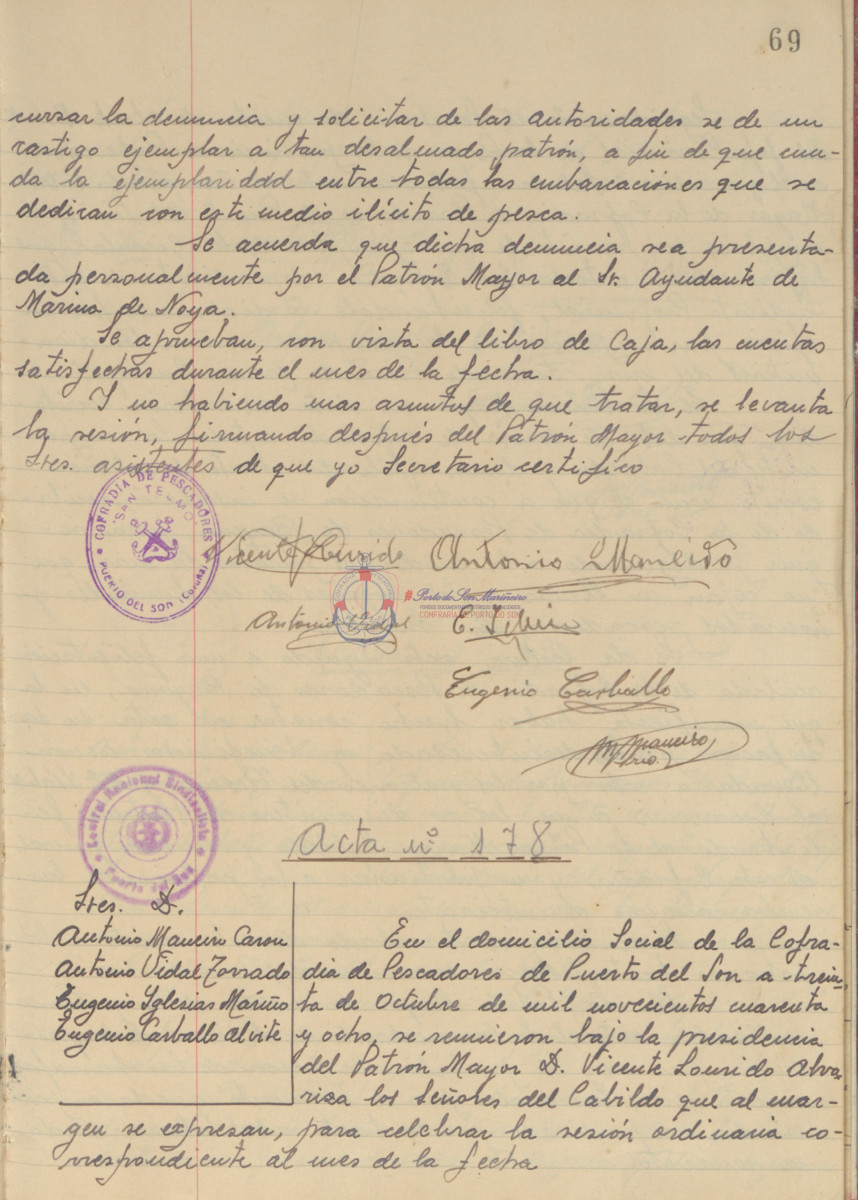 69
cursar la denuncia y solicitar de las autoridades se de un
castigo ejemplar a tan desalmado patrón, a fin de que cun-
da la ejemplaridad entre todas las embarcaciónes que se
dedican con este medio ilícito de pesca.
Se acuerda que dicha denuncia sea presenta-
da personalmente por el Patrón Mayor al Sr. Ayudante de
Marina de Noya.
Se aprueban, con vista del libro de Caja, las cuentas
satisfechas durante el mes de la fecha.
Y no habiendo mas asuntos de que tratar, se levanta
la sesión, firmando después del Patrón Mayor todos los
Sres. asistentes de que yo Secretario certifico
COFRADIA DE PESCADORES
"SAN TELMO"
PUERTO DEL SON (Coruña)
Vicente Lourido Antonio Maneiro
Porto do Son Mariñeiro
CONFRARÍA DE PORTO DO SON
Antonio Vidal
Eugenio Carballo
M. Maneiro
Central Nacional Sindicalista
Puerto del Son
Acta nº 178
Sres. D.
Antonio Maneiro Carou
Antonio Vidal Torrado
Eugenio Yglesias Mariño
Eugenio Carballo Alvite
En el domicilio Social de la Cofra-
dia de Pescadores de Puerto del Son a trein-
ta de Octubre de mil novecientos cuarenta
y ocho, se reunieron bajo la presidencia
del Patrón Mayor D. Vicente Lourido Alva-
riza los Señores del Cabildo que al mar-
gen se expresan, para celebrar la sesión ordinaria co-
rrespondiente al mes de la fecha